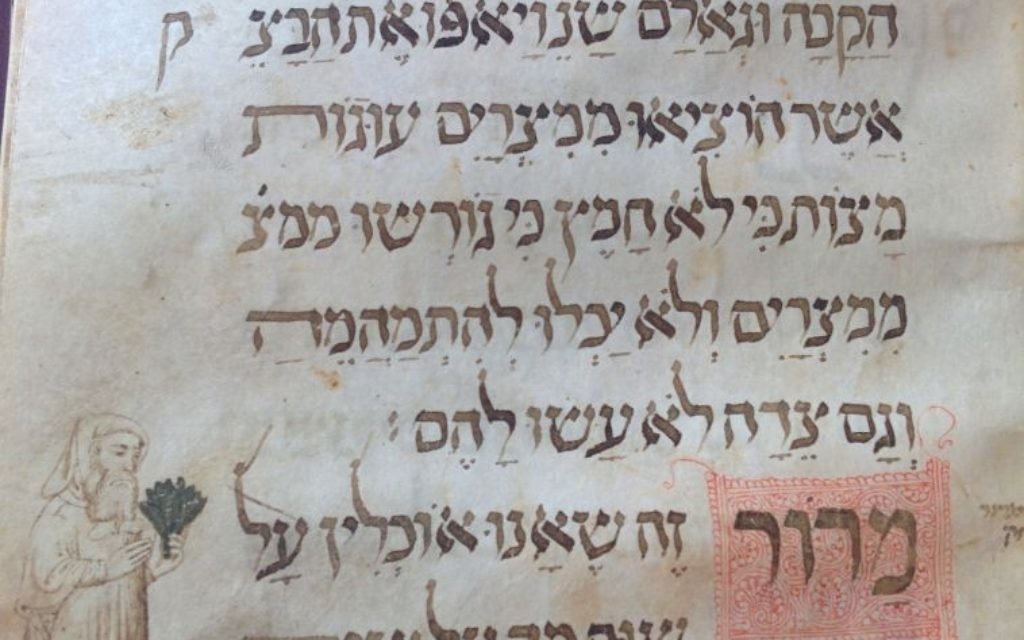 הקבה וגאלם שנ ויאפו את הבצ ק
אשר הוציאו ממצרים עוגות
מצות כי לא חמץ כי גורשו ממצ
ממצרים ולא יכלו להתמהמה
וגם צדה לא עשו להם :
מרור זה שאנו אוכלין על
שום מה על